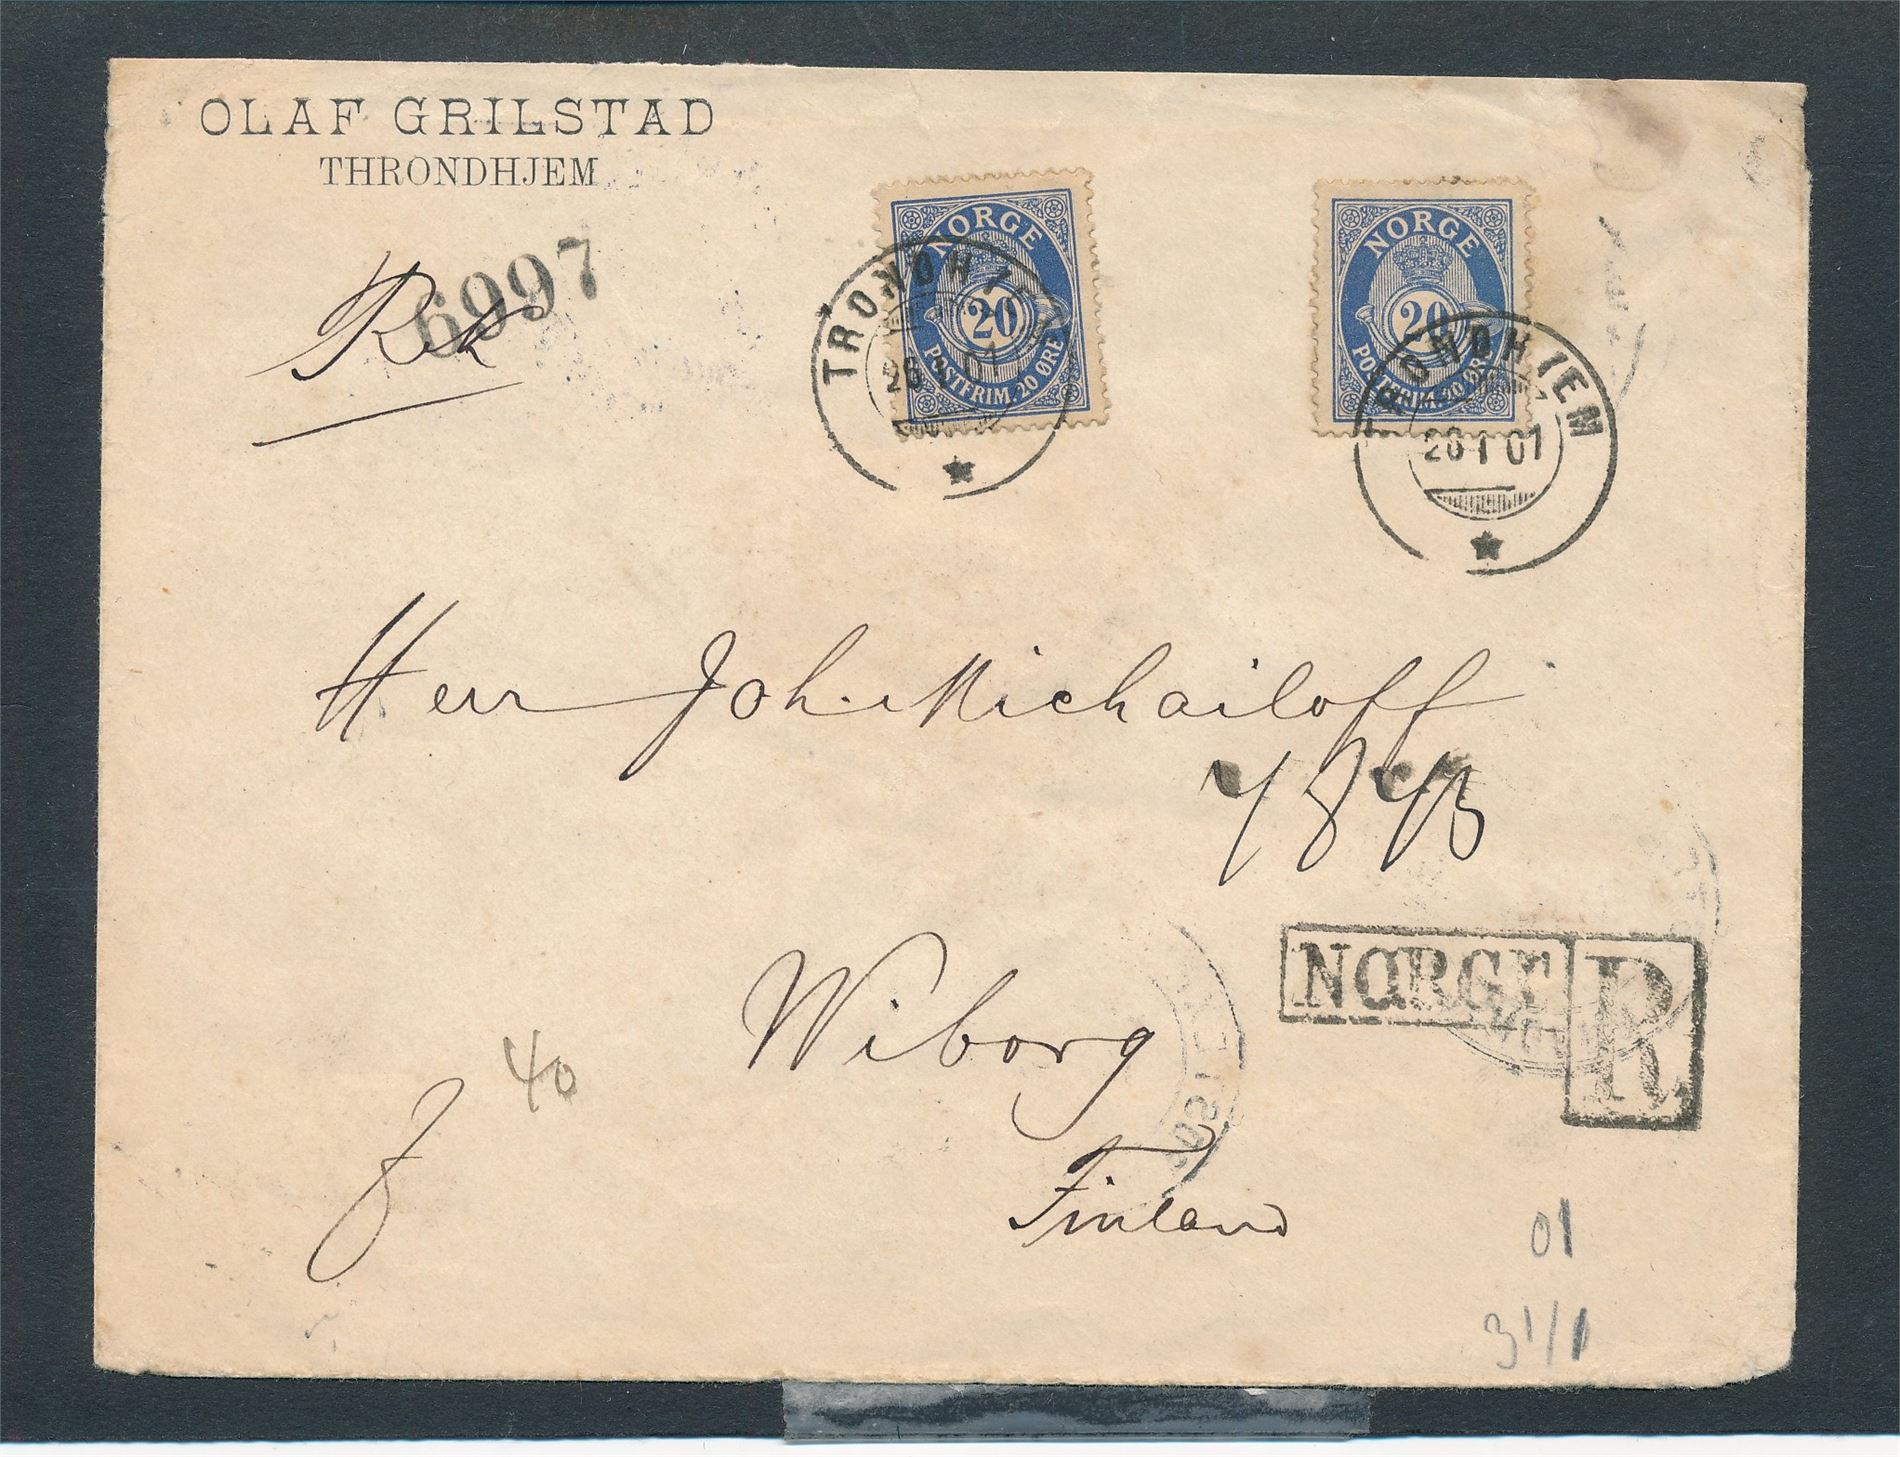 OLAF GRILSTAD
THRONDHJEM
Rek
6997
NORGE
20
POSTFRIM. 20 ØRE
NORGE
20
POSTFRIM. 20 ØRE
TRONDHJEM
26 I 01
TRONDHJEM
26 I 01
Herr Joh. Michailoff
Wiborg
Finland
NORGE R
40
01
31/1